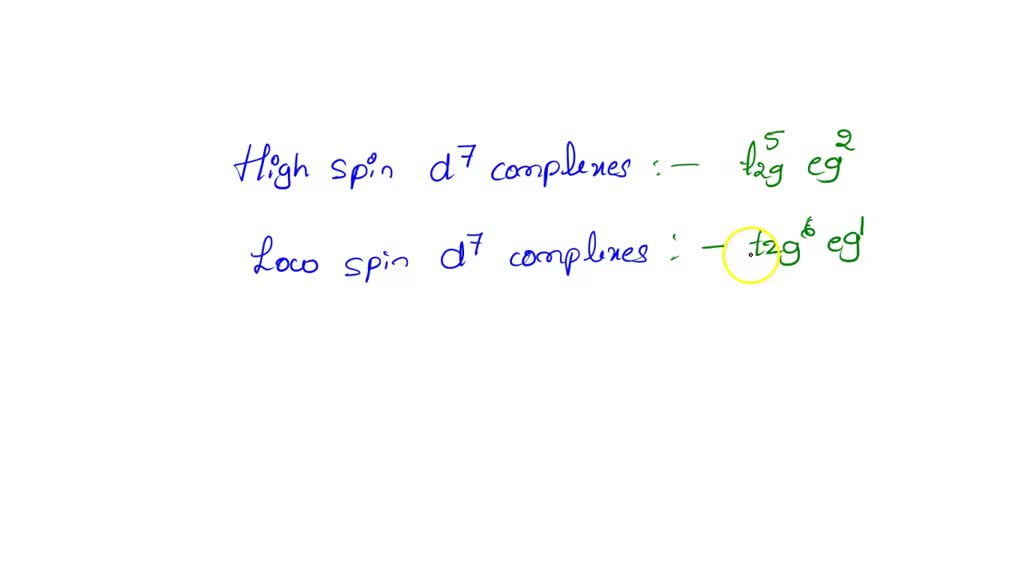 High spin d⁷ complexes :- t₂g⁵ eg²
Low spin d⁷ complexes :- t₂g⁶ eg¹